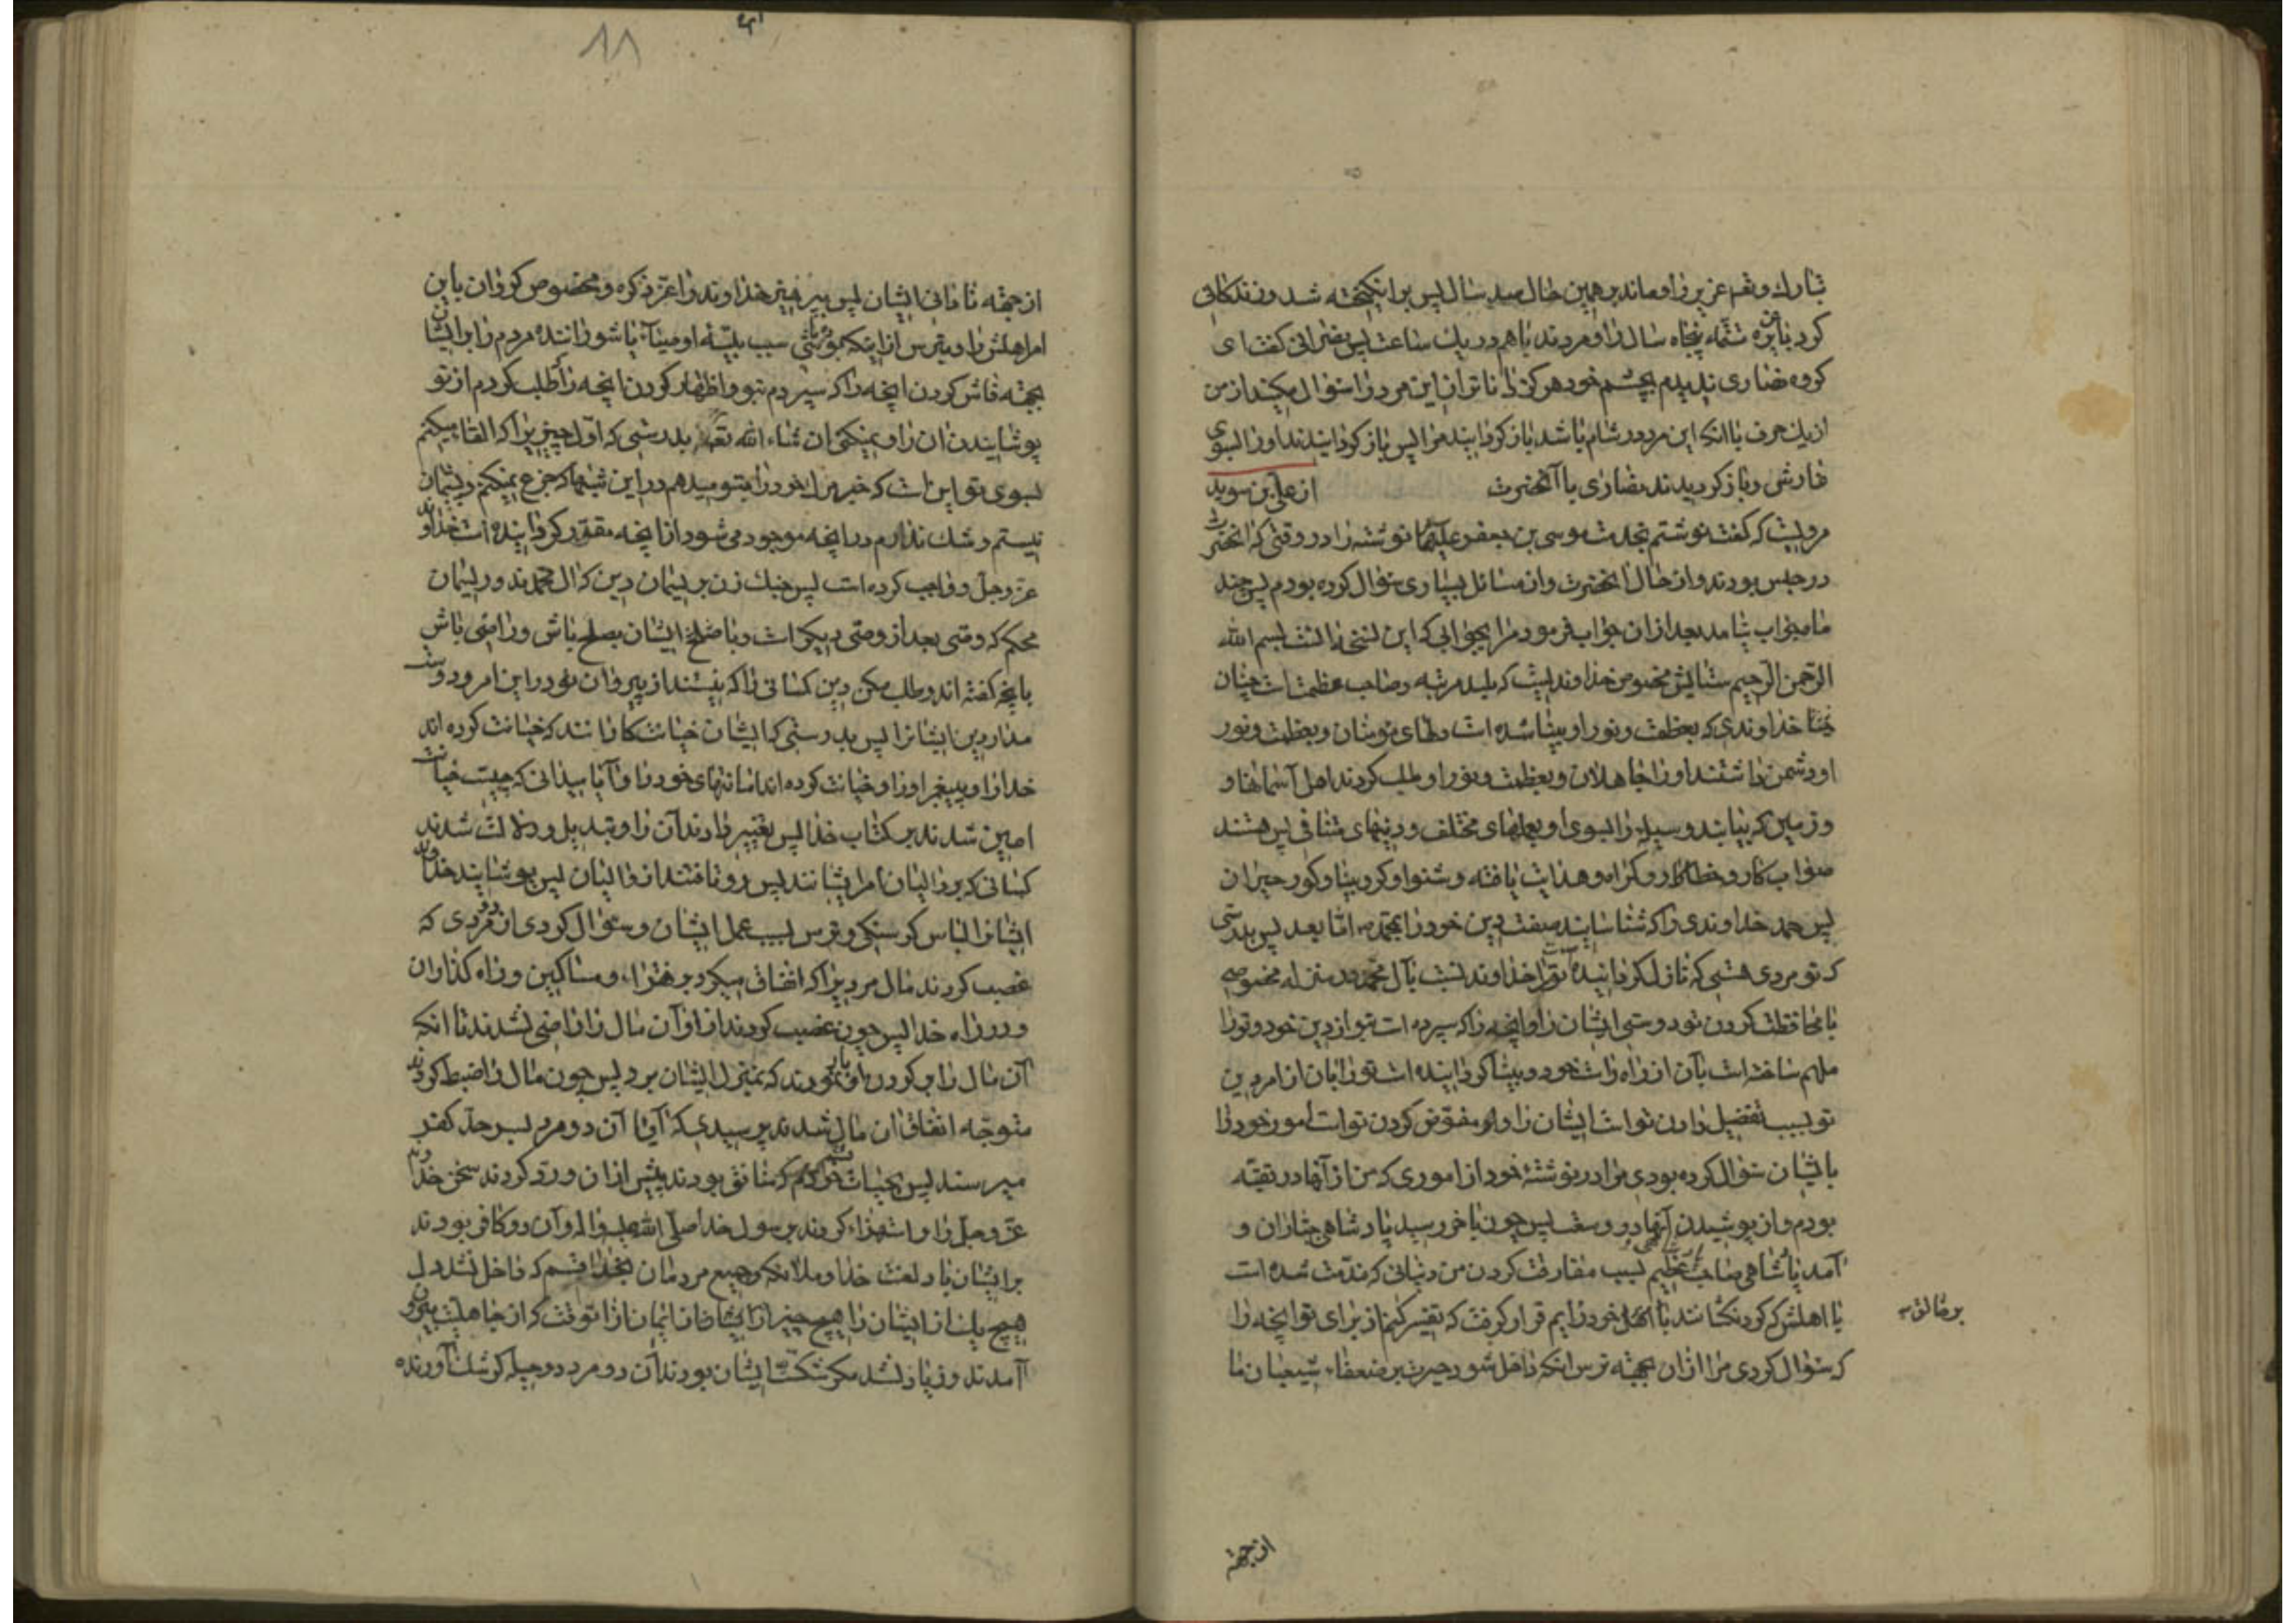 تبارك و تعالی عزیر را و ماند بر همین حال صد سال پس برانکیخته شد و زندکانی
کرد با عزره تتمّه پنجاه سال را و مردند با هم در یك ساعت پس نصرانی کفت ای
کروه نصاری ندیدم بچشم خود هرکز داناتر از این مرد را سؤال مکنید از من
از یك حرف با آنکه این مرد در شام باشد باز کردانید مرا پس باز کردانیدند او را بسوی
غارش و باز کردیدند نصاری با آنحضرت از علی بن سوید
مرویست که کفت نوشتم بخدمت موسی بن جعفر علیهما نوشته را در وقتی که آنحضرت
در حبس بودند و از حال آنحضرت و از مسائل بسیاری سؤال کرده بودم پس چند
ماه جواب نیامد بعد از آن جواب فرمود مرا بجوابی که این نسخهٔ آنست بسم الله
الرّحمن الرّحیم ستایش مخصوص خداوندیست که بلند مرتبه و صاحب عظمت است چنان
خداوندی که بعظمت و نور او بینا شده است دلهای مؤمنان و بعظمت و نور
او دشمن داشتند او را جاهلان و بعظمت و نور او طلب کردند اهل آسمانها و
و زمین که بیابند وسیله را بسوی او بعملهای مختلف و دینهای متنافی پس هستند
صواب کار و خطا کار و کمراه و هدایت یافته و شنوا و کر و بینا و کور حیران
پس حمد خداوندی را که شناسانید صفت دین خود را بمحمد ص امّا بعد پس بدرستی
که تو مردی هستی که نازل کردانیده است ترا خداوند نسبت بآل محمد در منزله مخصوصه
با محافظت کردن تو دوستی ایشان را و آنچه را که سپرده است بتو از دین خود و تو را
ملهم ساخته است بآن از راه راست خود و بینا کردانیده است تو را بآن از امر دین
تو بسبب تفضیل دادن تو است ایشان را و مفوّض کردن تو است امور خود را
بایشان سؤال کرده بودی مرا در نوشتهٔ خود از اموری که من از آنها در تقیّه
بودم و از پوشیدن آنها در وسعت پس چون بآخر رسید پادشاهی جبّاران و
آمد پادشاهی صاحب پادشاهی عظیم بسبب مفارقت کردن من دنیائی که مذمّت شده است
با اهلش که کردنکشانند بر خالق خود رایم قرار کرفت که تفسیر کنم از برای تو آنچه را
بر خالق
که سؤال کردی مرا از آن بجهة ترس آنکه داخل شود حیرت بر ضعفاء شیعیان ما
از جهة
۱۸
از جهة نادانی ایشان پس بپرهیز خداوند را عزّ ذکره و مخصوص کردان باین
امر اهلش را و بترس از اینکه بوده باشی سبب بلیّهٔ اوصیآء یا شوراننده مردم را بر ایشان
بجهة فاش کردن آنچه را که سپردم بتو و اظهار کردن آنچه را طلب کردم از تو
پوشانیدن آن را و نمیکنی آن شاء الله تعالی بدرستی که اوّل چیزی را که القا میکنم
بسوی تو این است که خبر مرك خود را بتو میدهم در این شبها که جزع نمیکنم و پشیمان
نیستم و شك ندارم در آنچه موجود می شود از آنچه مقدّر کردانیده است خداوند
عزّ و جلّ و واجب کرده است پس چنك زن بریسمان دین که آل محمّدند و ریسمان
محکم که وصی بعد از وصی دیکر است و با صلح ایشان بصلح باش و راضی باش
بآنچه کفته اند و طلب مکن دین کسانی را که نیستند از پیروان تو در این امر و دوست
مدار دین ایشانرا پس بدرستی که ایشان خیانتکارانند که خیانت کرده اند
خدا را و پیغمبر او را و خیانت کرده اند امانتهای خود را و آیا میدانی که چیست خیانت
امین شدند بر کتاب خدا پس تغییر دادند آن را و تبدیل و دلالت شدند
کسانی که بر والیان امر ایشانند پس رو تافتند از والیان پس پوشانید خداوند
ایشانرا لباس کرسنکی و ترس بسبب عمل ایشان و سؤال کردی از دو مردی که
غصب کردند مال مردیرا که انفاق میکرد بر فقراء و مساکین و راه کذاران
و در راه خدا پس چون غصب کردند از او آن مال را راضی نشدند تا آنکه
آن مال را بر کردن او بار نمودند که بمنزل ایشان برد پس چون مال را ضبط کردند
متوجّه انفاق آن مال شدند پرسیدی که آیا آن دو مرد بسر حدّ کفر
میرسند پس بحیات خود قسم که منافق بودند پیش از آن و ردّ کردند سخن خداوند
عزّ و جلّ را و استهزاء کردند برسول خدا صلّی الله علیه و آله و آن دو کافر بودند
بر ایشان باد لعنت خدا و ملائکه و جمیع مردمان بخدا قسم که داخل نشد دل
هیچ یك از ایشان را هیچ چیز از ایمان از آن وقت که از جاهلیت بیرون
آمدند و زیاد نشد مکر شکّ ایشان بودند آن دو مرد دو حیله کر شك آورنده